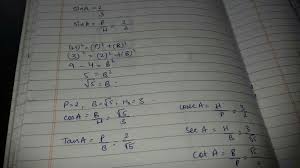 sinA = 2/3
sinA = P/H = 2/3
(H)² = (P)² + (B)²
(3)² = (2)² + (B)²
9 - 4 = B²
5 = B²
√5 = B
P=2, B=√5, H=3
cosA = B/H = √5/3
TanA = P/B = 2/√5
cosec A = H/P = 3/2
sec A = H/B = 3/√5
Cot A = B/P = √5